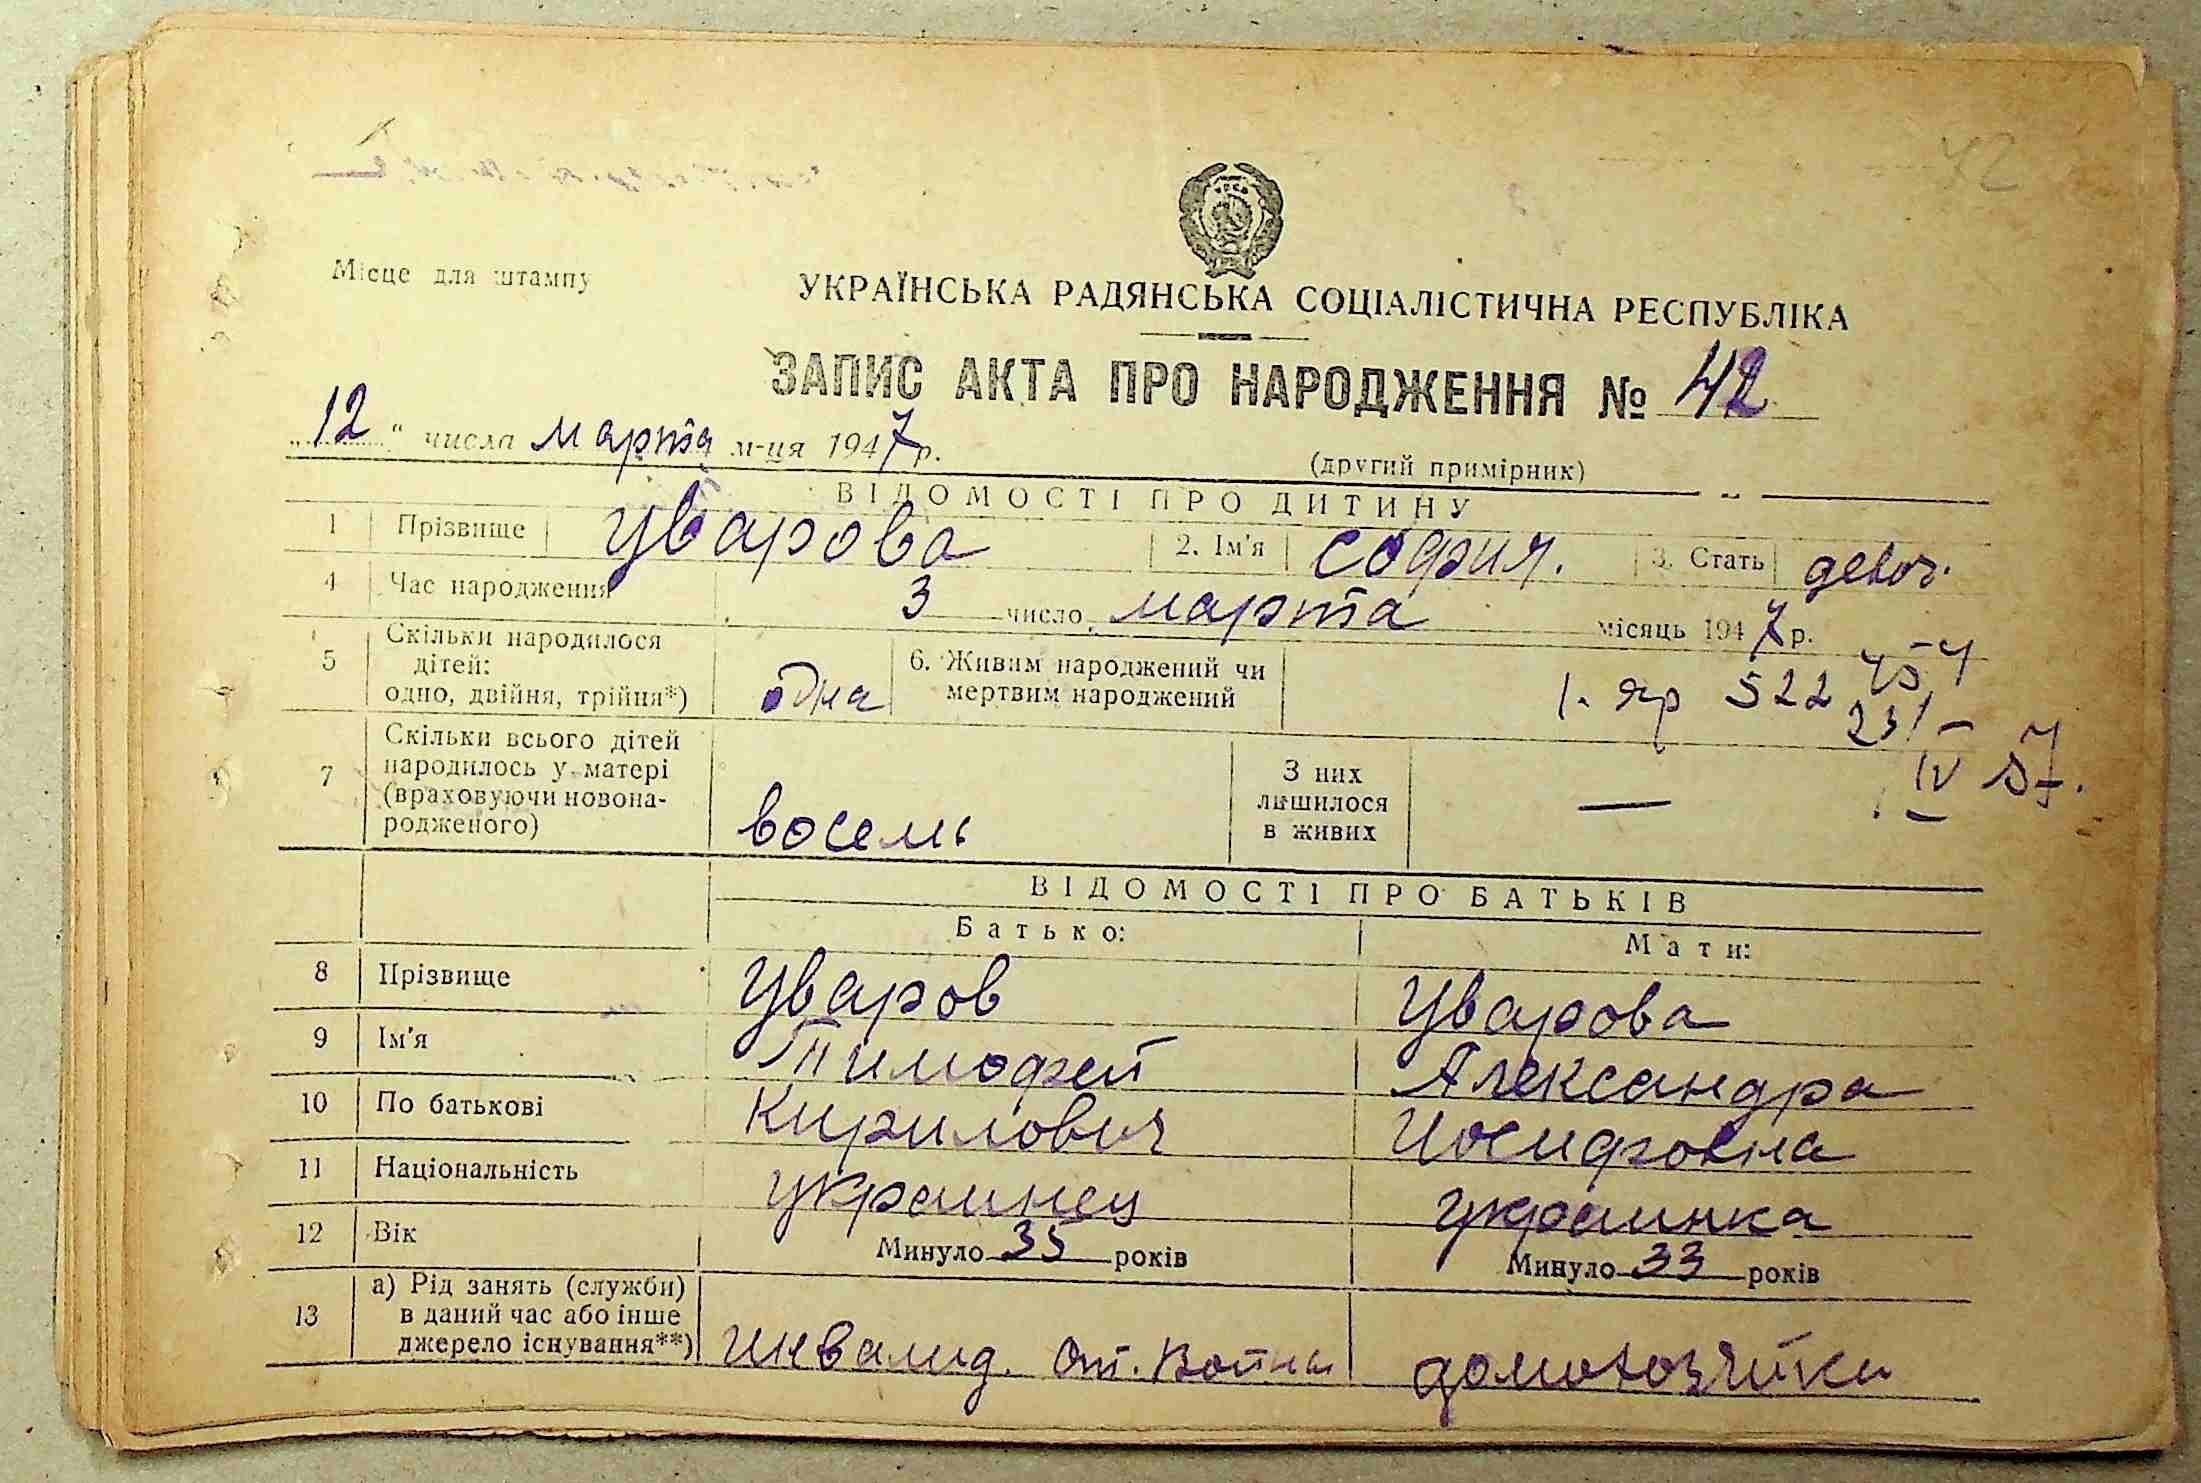 42
Місце для штампу
УКРАЇНСЬКА РАДЯНСЬКА СОЦІАЛІСТИЧНА РЕСПУБЛІКА
ЗАПИС АКТА ПРО НАРОДЖЕННЯ № 42
„12“ числа марта м-ця 1947 р.
(другий примірник)
ВІДОМОСТІ ПРО ДИТИНУ
1 Прізвище Уварова 2. Ім'я София. 3. Стать девоч.
4 Час народження 3 число марта місяць 1947 р.
5 Скільки народилося дітей: одно, двійня, трійня*) одна 6. Живим народжений чи мертвим народжений
1. яр 522
23/
IV 57.
7 Скільки всього дітей народилось у матері (враховуючи новонародженого) восемь З них лишилося в живих —
ВІДОМОСТІ ПРО БАТЬКІВ
Батько: Мати:
8 Прізвище Уваров Уварова
9 Ім'я Тимофей Александра
10 По батькові Кирилович Иосифовна
11 Національність украинец украинка
12 Вік Минуло 35 років Минуло 33 років
13 а) Рід занять (служби) в даний час або інше джерело існування**) инвалид. От. Войны домохозяйка